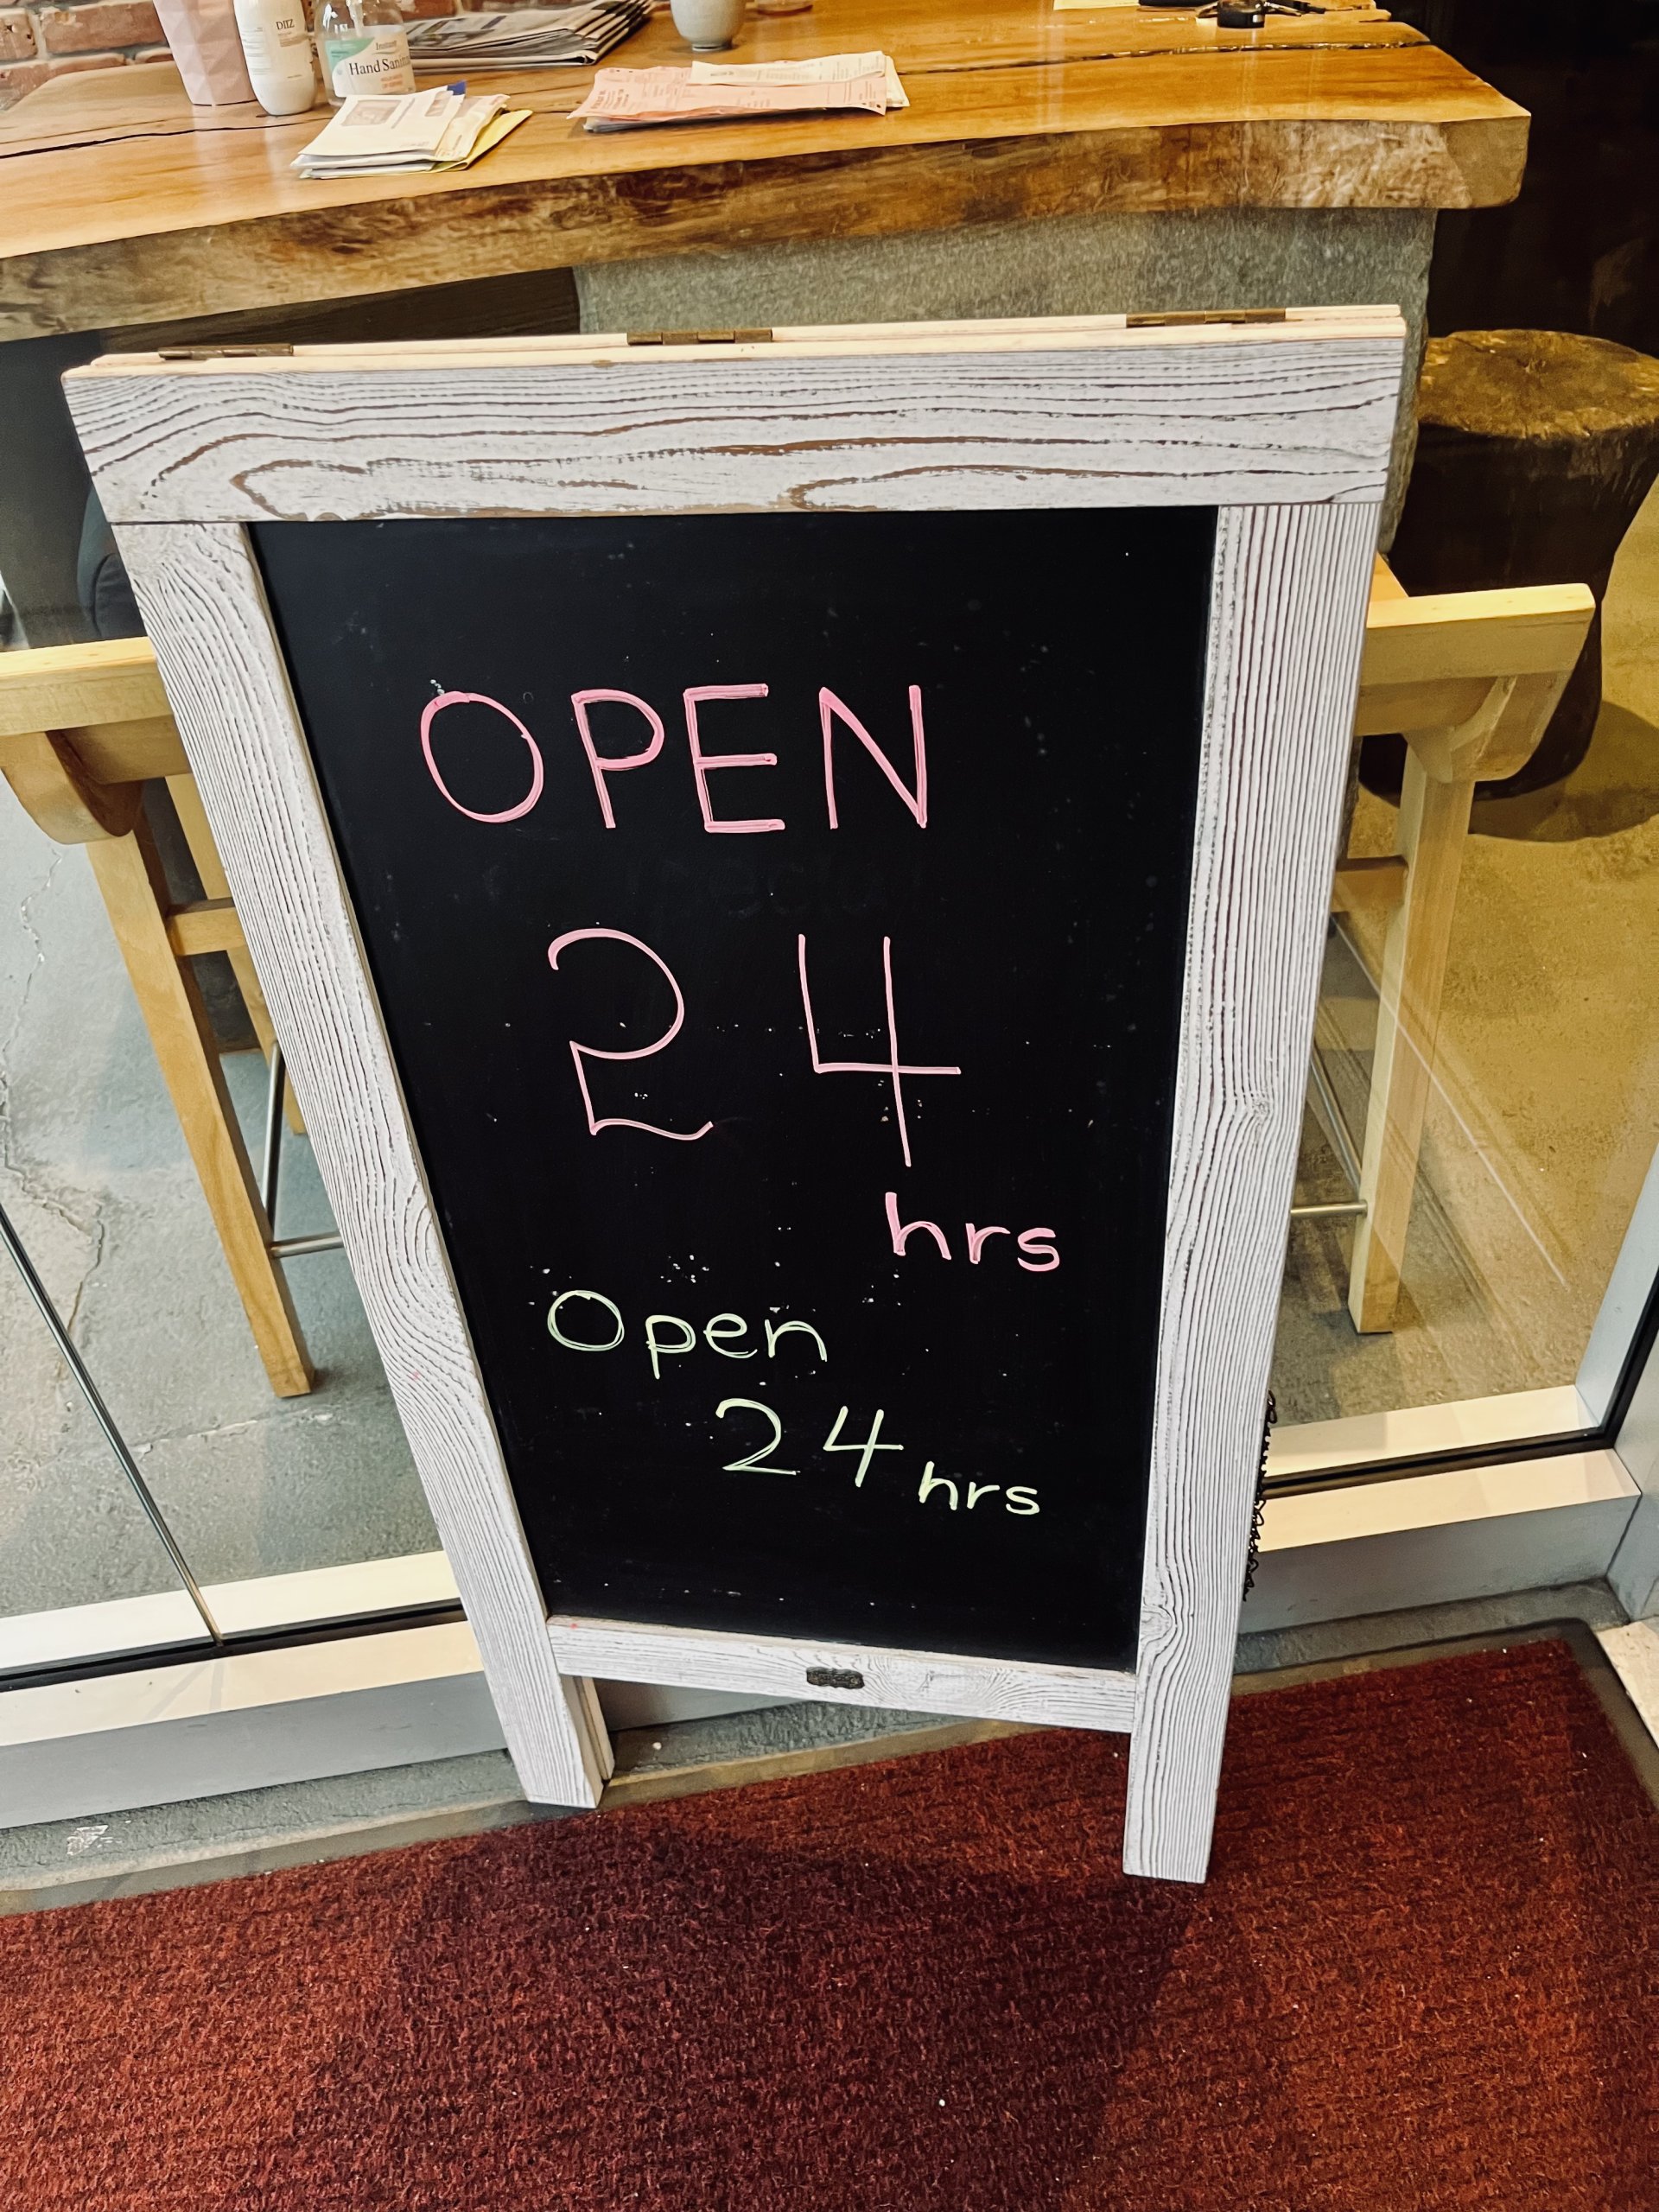 DIIZ
Instant
Hand Sani
OPEN
24
hrs
Open
24 hrs